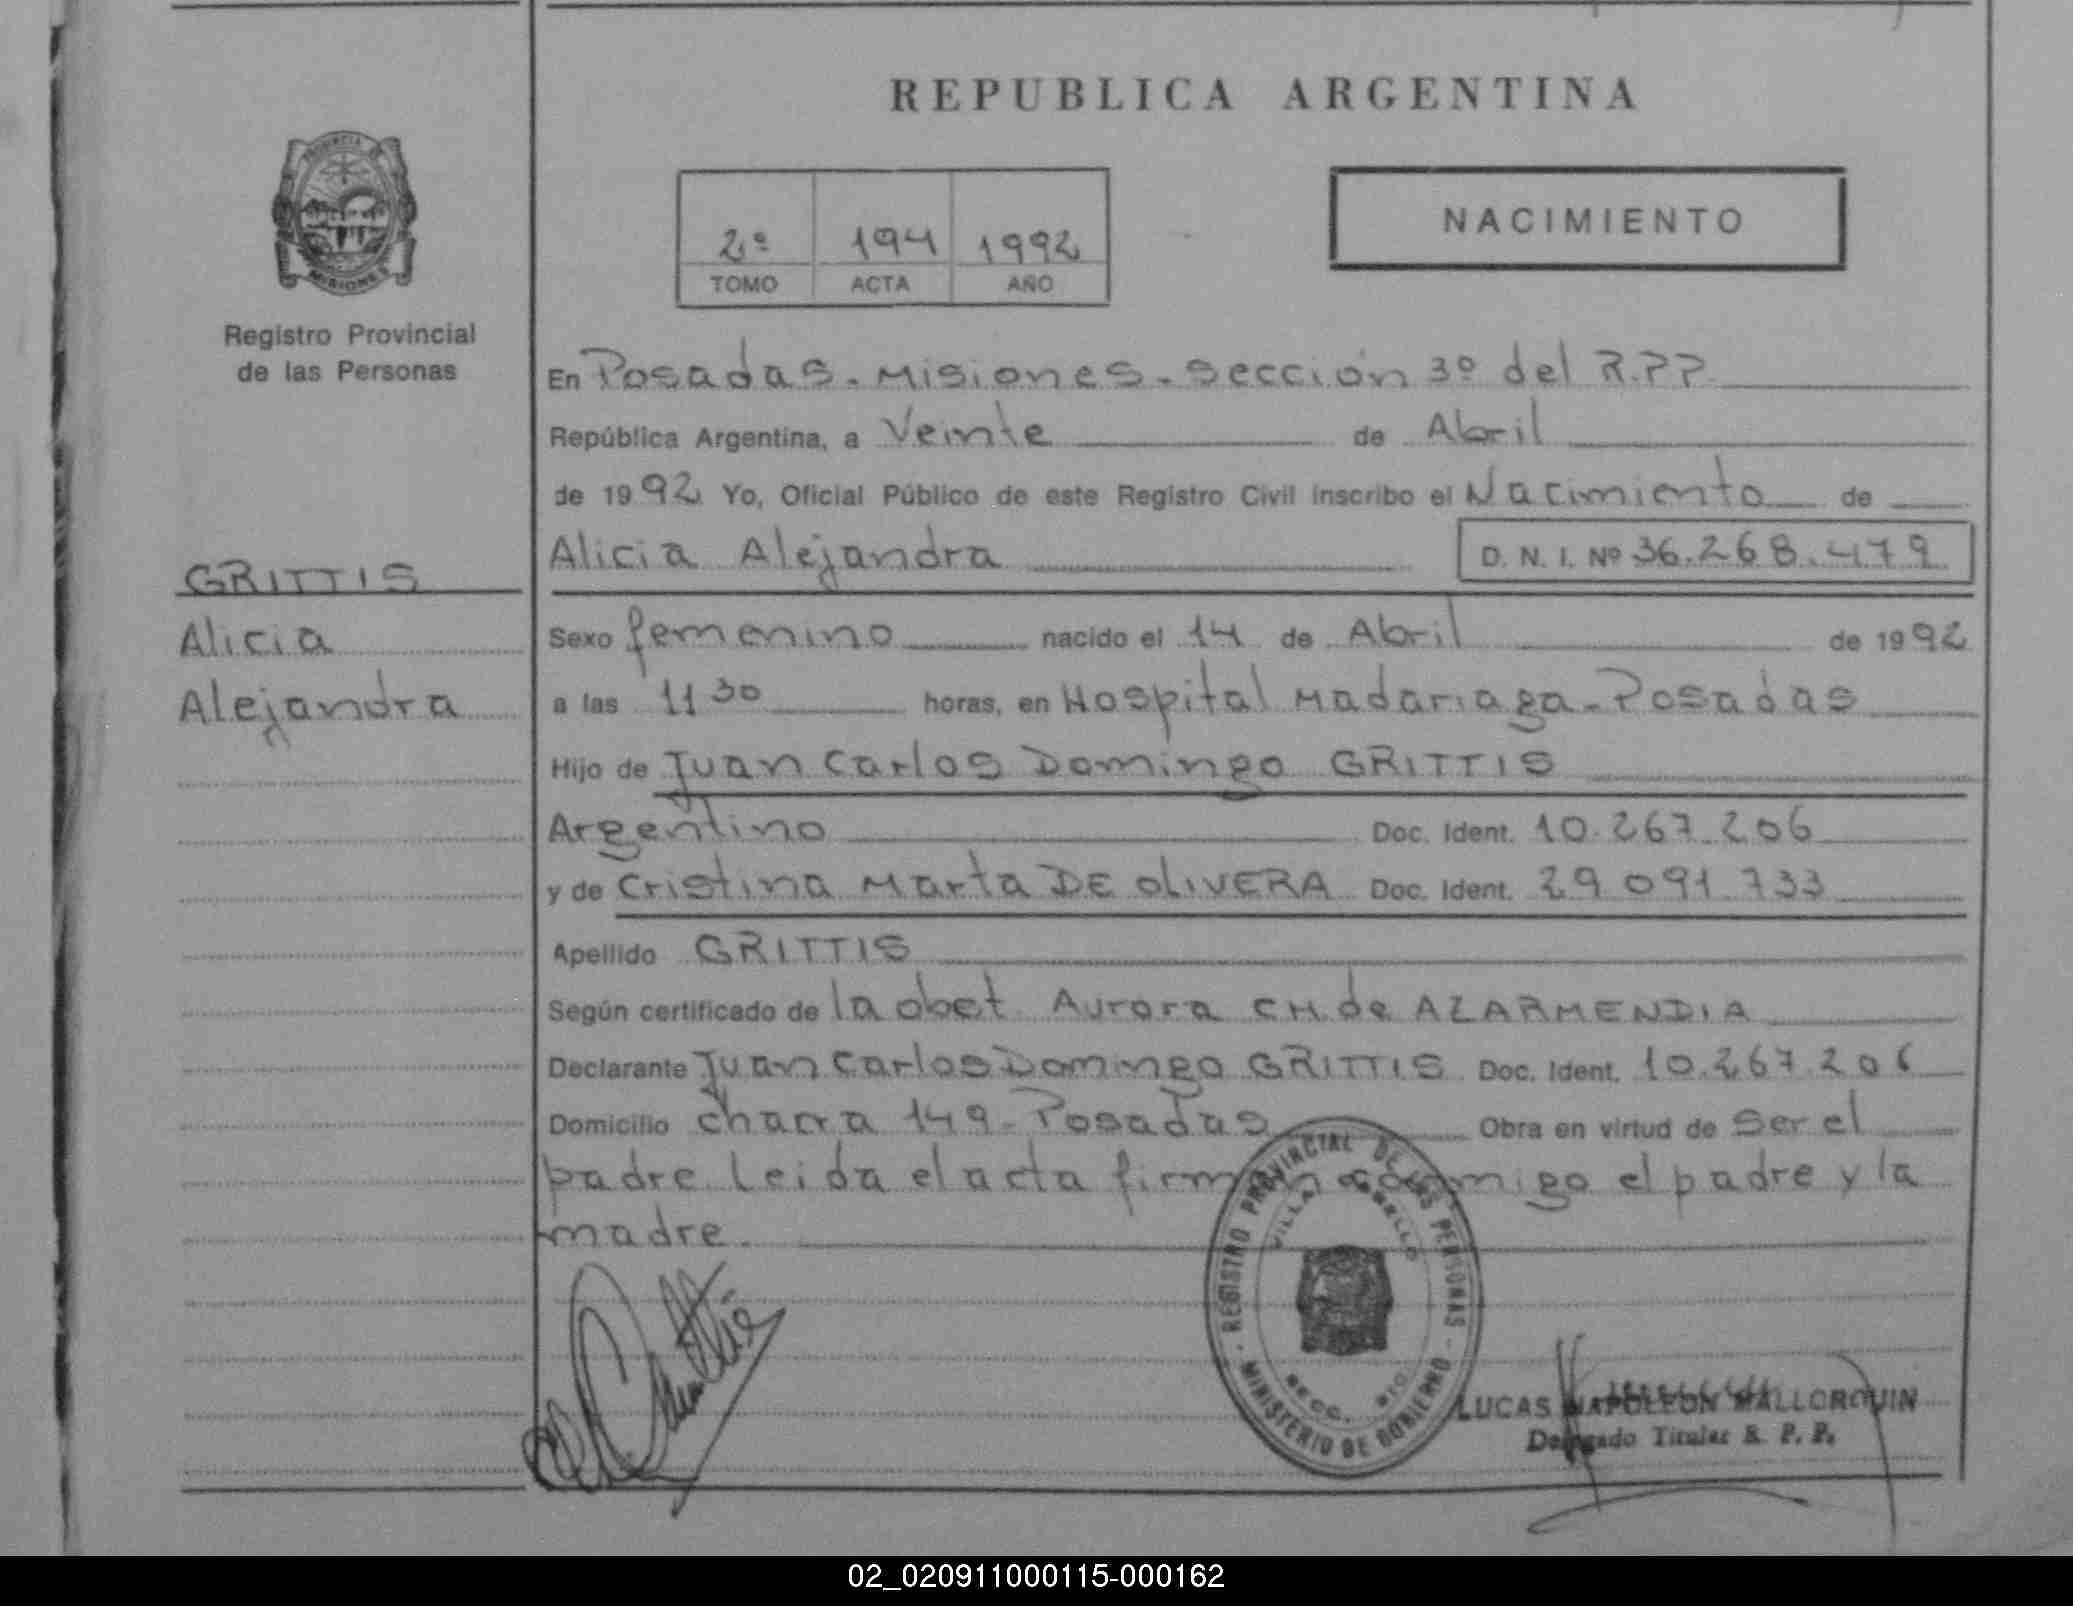 REPUBLICA ARGENTINA
PROVINCIA DE
MISIONES
Registro Provincial
de las Personas
2º 194 1992
TOMO ACTA AÑO
NACIMIENTO
En Posadas. Misiones. Sección 3º del R.P.P.
República Argentina, a Veinte de Abril
de 1992 Yo, Oficial Público de este Registro Civil inscribo el Nacimiento de
Alicia Alejandra D. N. I. Nº 36.268.479
GRITTIS
Alicia
Alejandra
Sexo femenino nacido el 14 de Abril de 1992
a las 11 30 horas, en Hospital Madariaga - Posadas
Hijo de Juan Carlos Domingo GRITTIS
Argentino Doc. Ident. 10.267.206
y de Cristina Marta DE OLIVERA Doc. Ident. 29 091 733
Apellido GRITTIS
Según certificado de la obst. Aurora CH. de AZARMENDIA
Declarante Juan Carlos Domingo GRITTIS Doc. Ident. 10.267.206
Domicilio chacra 149 - Posadas Obra en virtud de ser el
padre. Leida el acta firman conmigo el padre y la
madre.
REGISTRO PROVINCIAL DE LAS PERSONAS
MINISTERIO DE GOBIERNO
LUCAS NAPOLEON MALLORQUIN
Delegado Titular R. P. P.
02_020911000115-000162